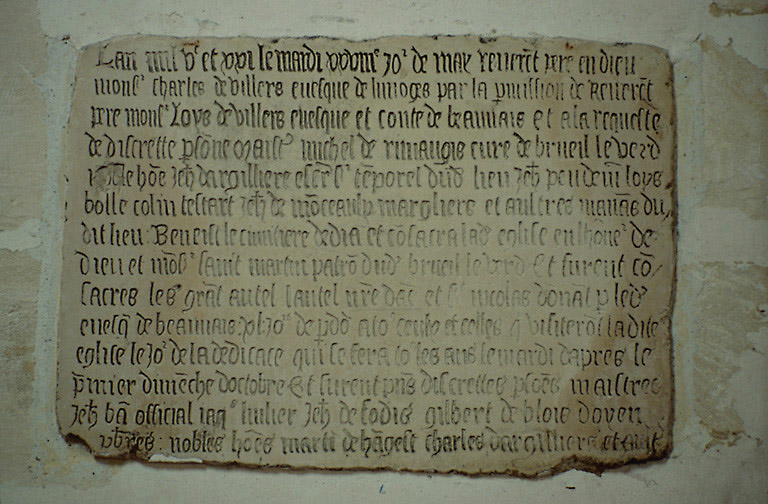 Lan mil vc et xxi le mardi xxviiie jor de may reverēt pere en dieu
monsr charles de villers evesque de limoges par la pmission de Reverēt
pere monsr Loys de villers evesque et conte de beauvais et a la requeste
de discrette psōne maistre michel de cure de brueil le verd
hōe Jeh̄ dargilliere escer sr tēporel dud lieu Jeh̄ loys
bolle colin testart Jeh̄ de mōceaulx margliers et aultres manās du
dit lieu Beneist le cimitiere dedia et cōsacra lad eglise en lhōner de
dieu et mōsr saint martin patrō dud brueil le verd Et furent cō
sacres les grāt autel lautel nre dāe et st nicolas donāt p led
evesq de beauvais xl jors de pdō a to ceulx et celles q visiterōt ladite
eglise le jor de la dedicace qui se fera to les ans le mardi dapres le
pmier dimēche doctobre Et furent pns discrettes psōes maistres
Jeh̄ official hulier Jeh̄ de gilbert de blois doyen
nobles hōes marti de hāgest charles dargilliers et